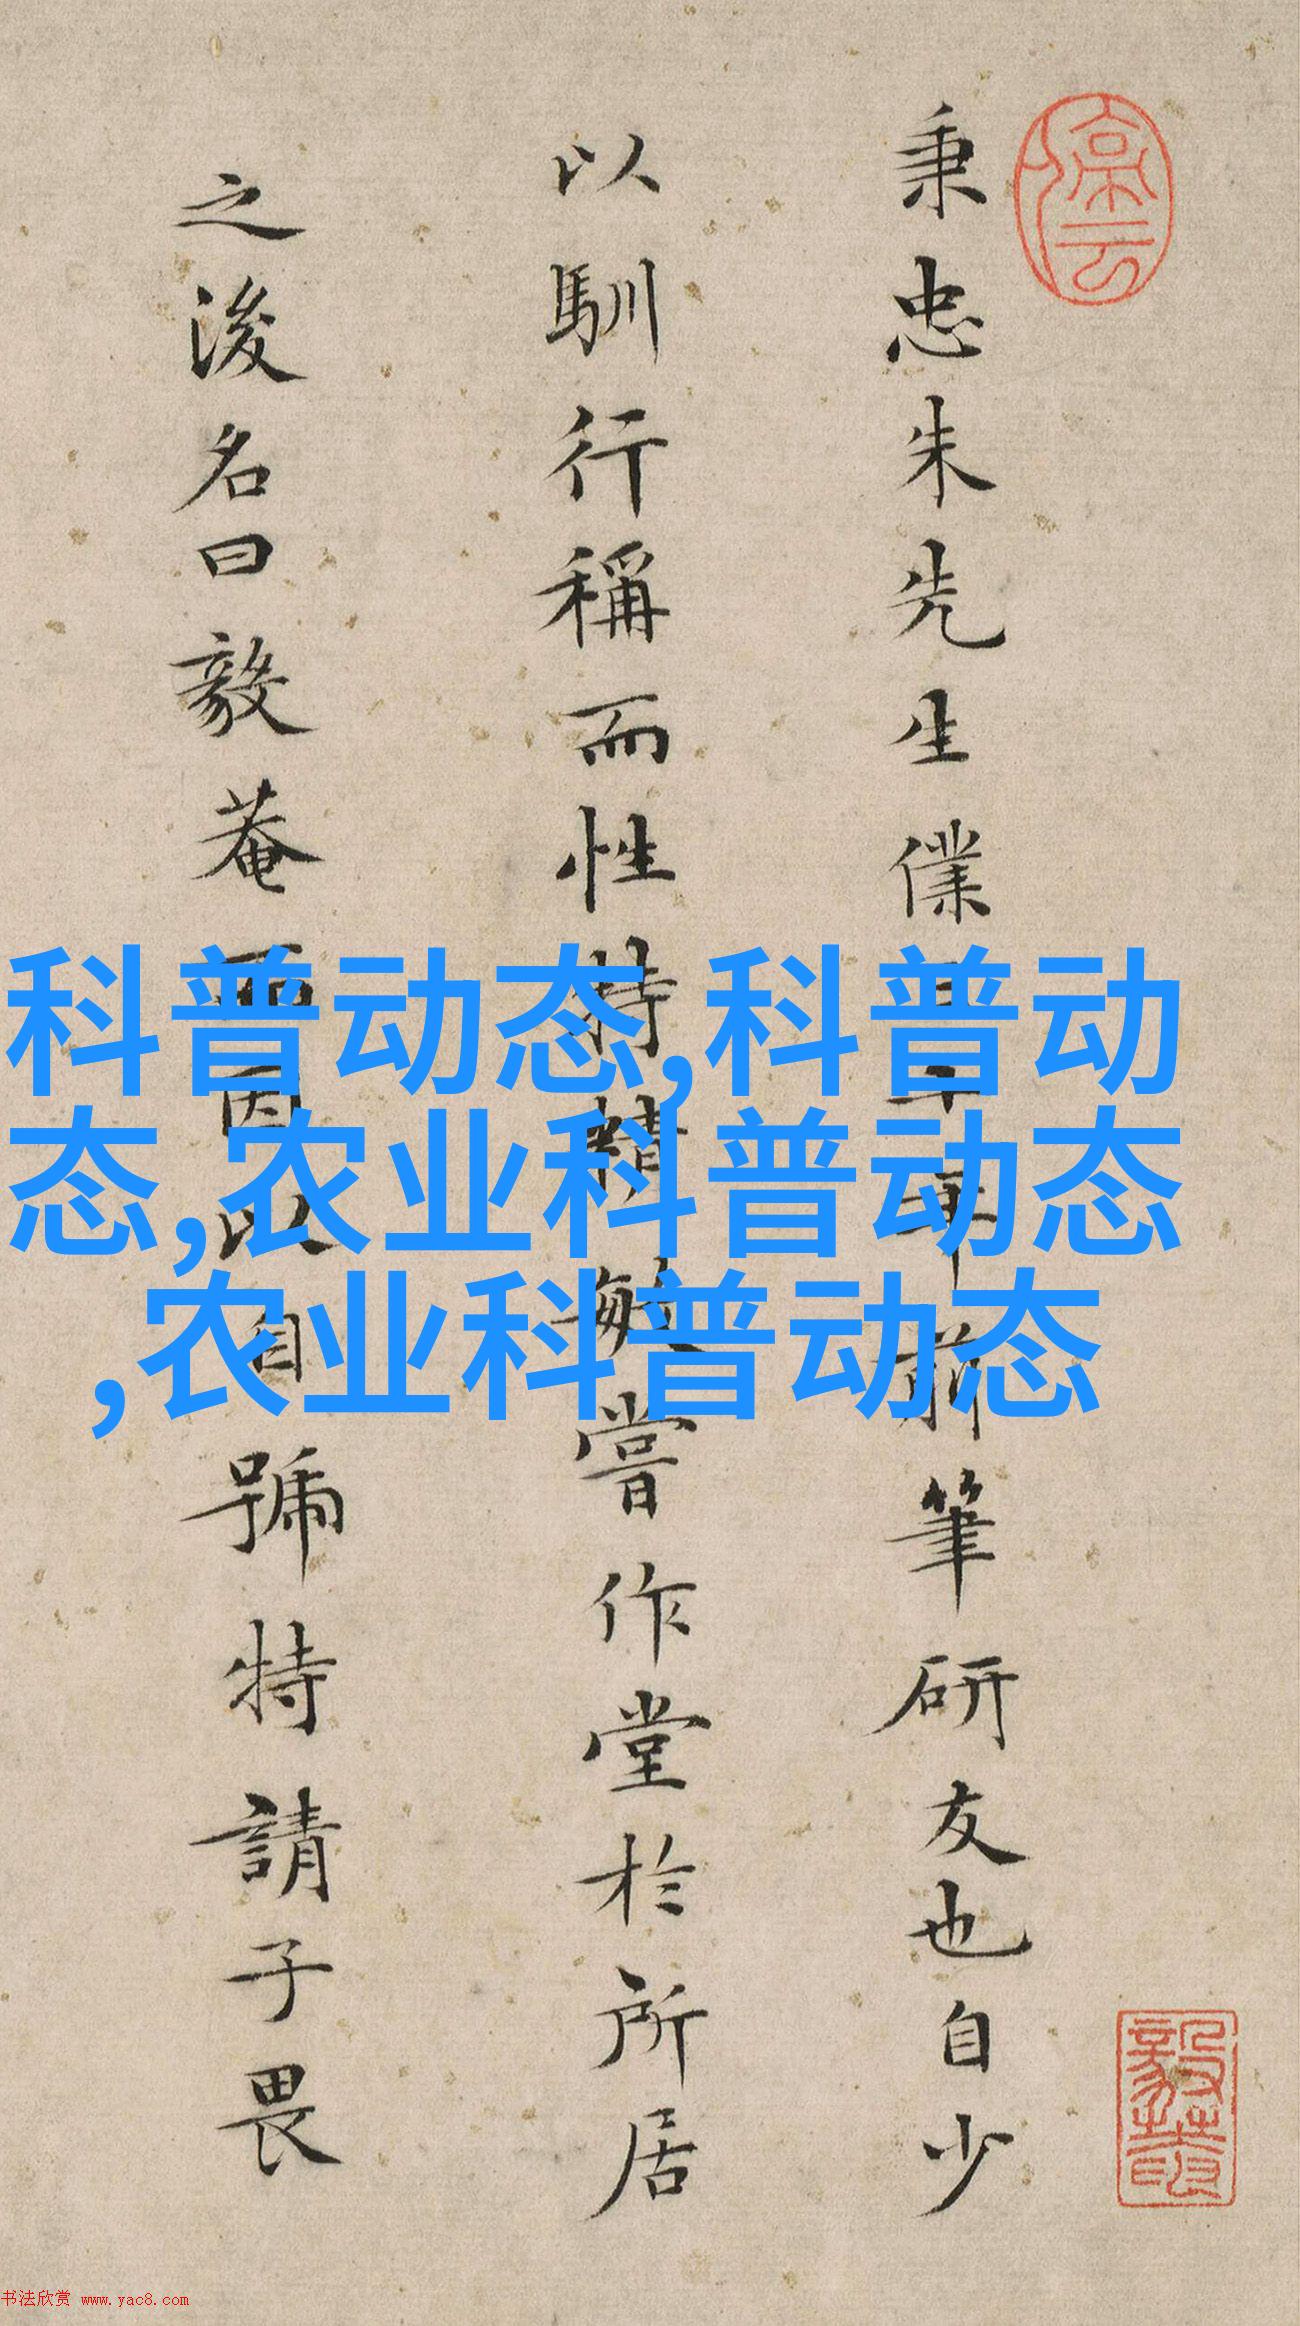 秉忠朱先生僕
年前筆研友也自少
以馴行稱而性特精敏嘗作堂於所居
之後名曰毅菴而因以自號特請子畏
科普动态,科普动
态,农业科普动态
,农业科普动态
书法欣赏 www.yac8.com